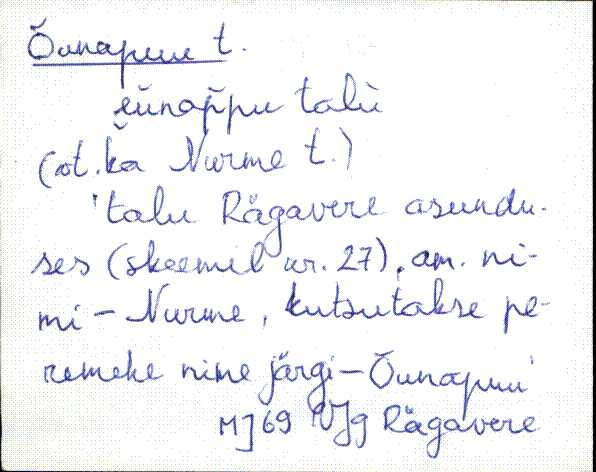 Õunapuu t.
eùnappu talù
(vt. ka Nurme t.)
'talu Rägavere asundu-
ses (skeemil nr. 27), am. ni-
mi – Nurme, kutsutakse pe-
remehe nime järgi – Õunapuu'
MJ 69 VJg Rägavere